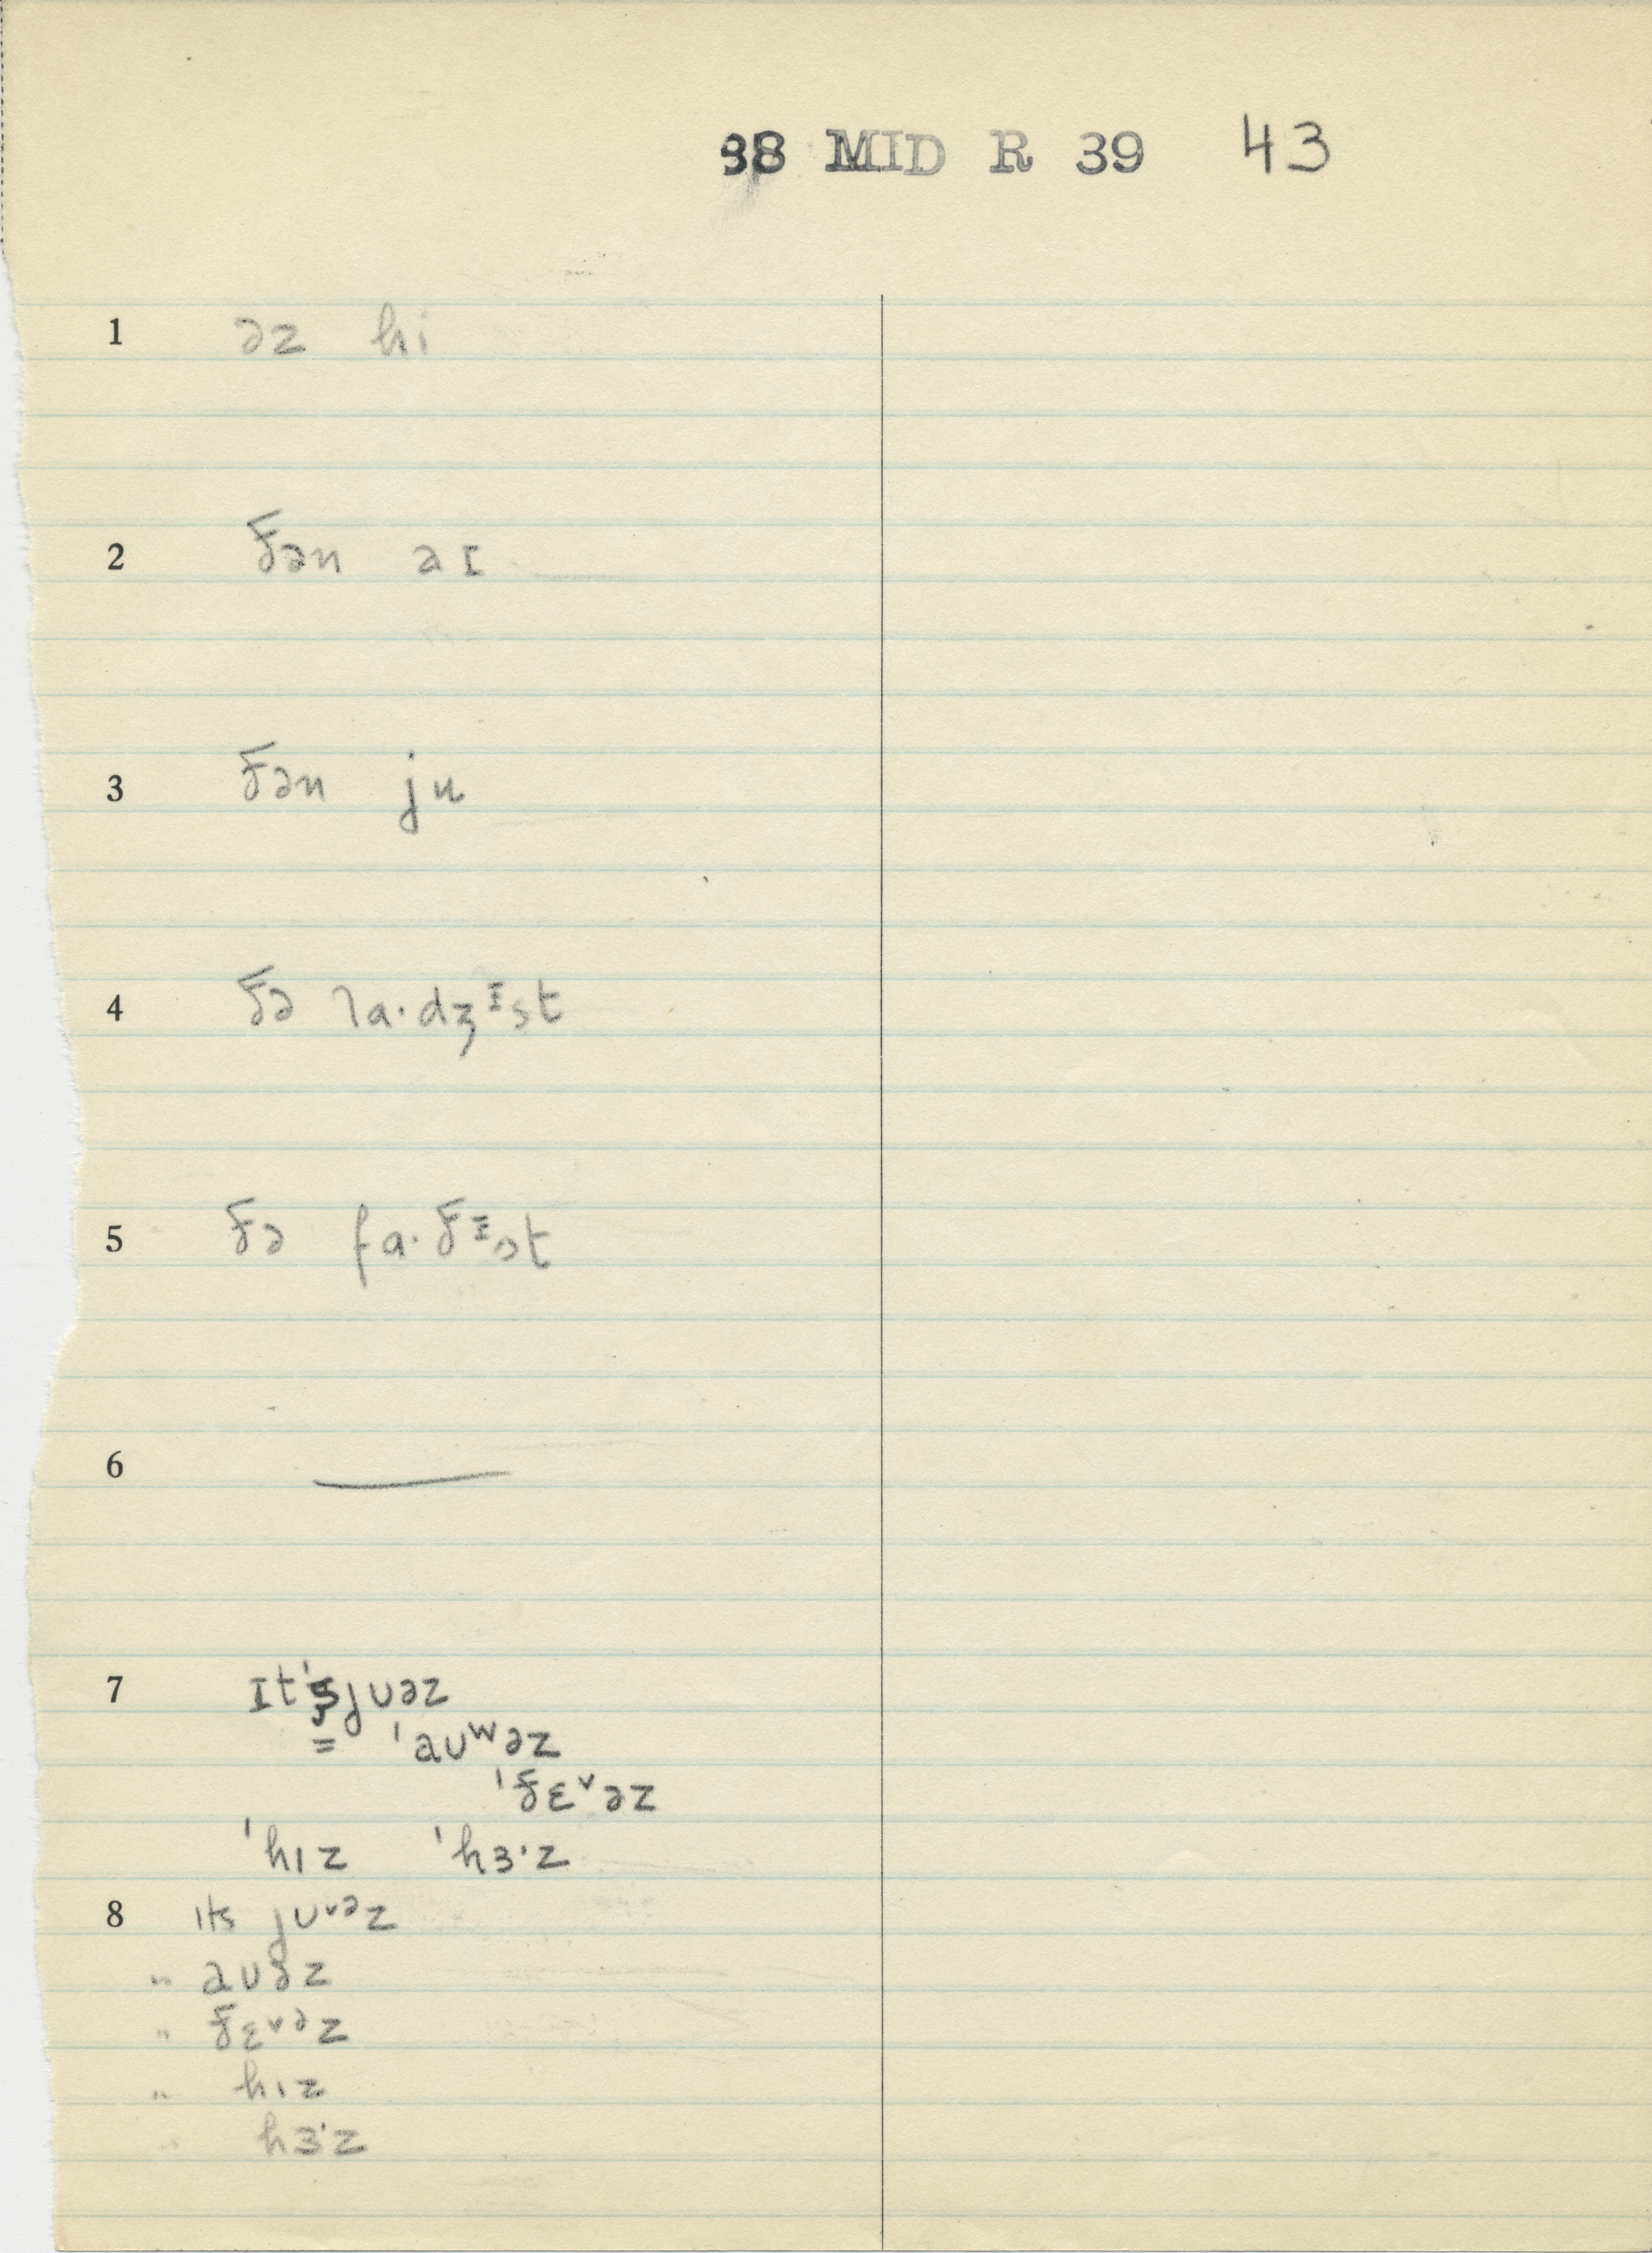 38 MID R 39 43
1 əz hi
2 ðən aɪ
3 ðən ju
4 ðə la·dʒᵻst
5 ðə fa·ðᵻst
6 ——
7 ɪt's juəz
= ˈauʷəz
ˈðɛᵛəz
ˈhız ˈhɜ·z
8 ıts juᵛᵊz
" auəz
" ðɛᵛᵊz
" hız
" hɜ·z